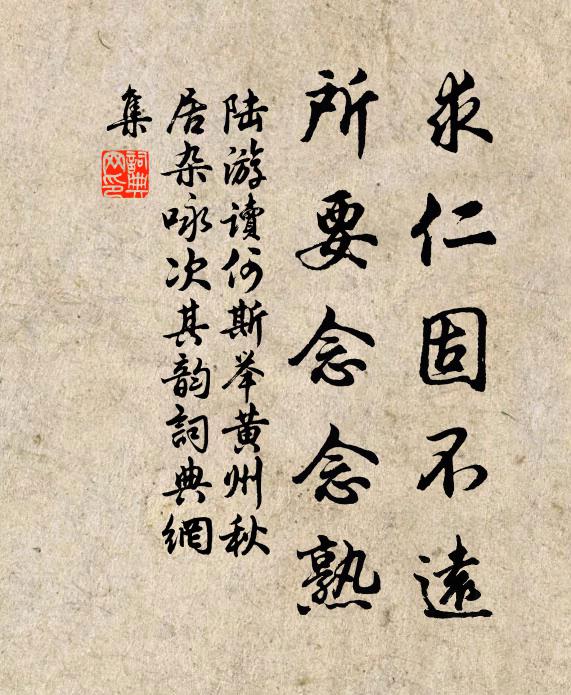 求仁固不遠
所要念念熟
陆游讀何斯举黄州秋
居杂咏次其韵詞典網
集
詞典網印